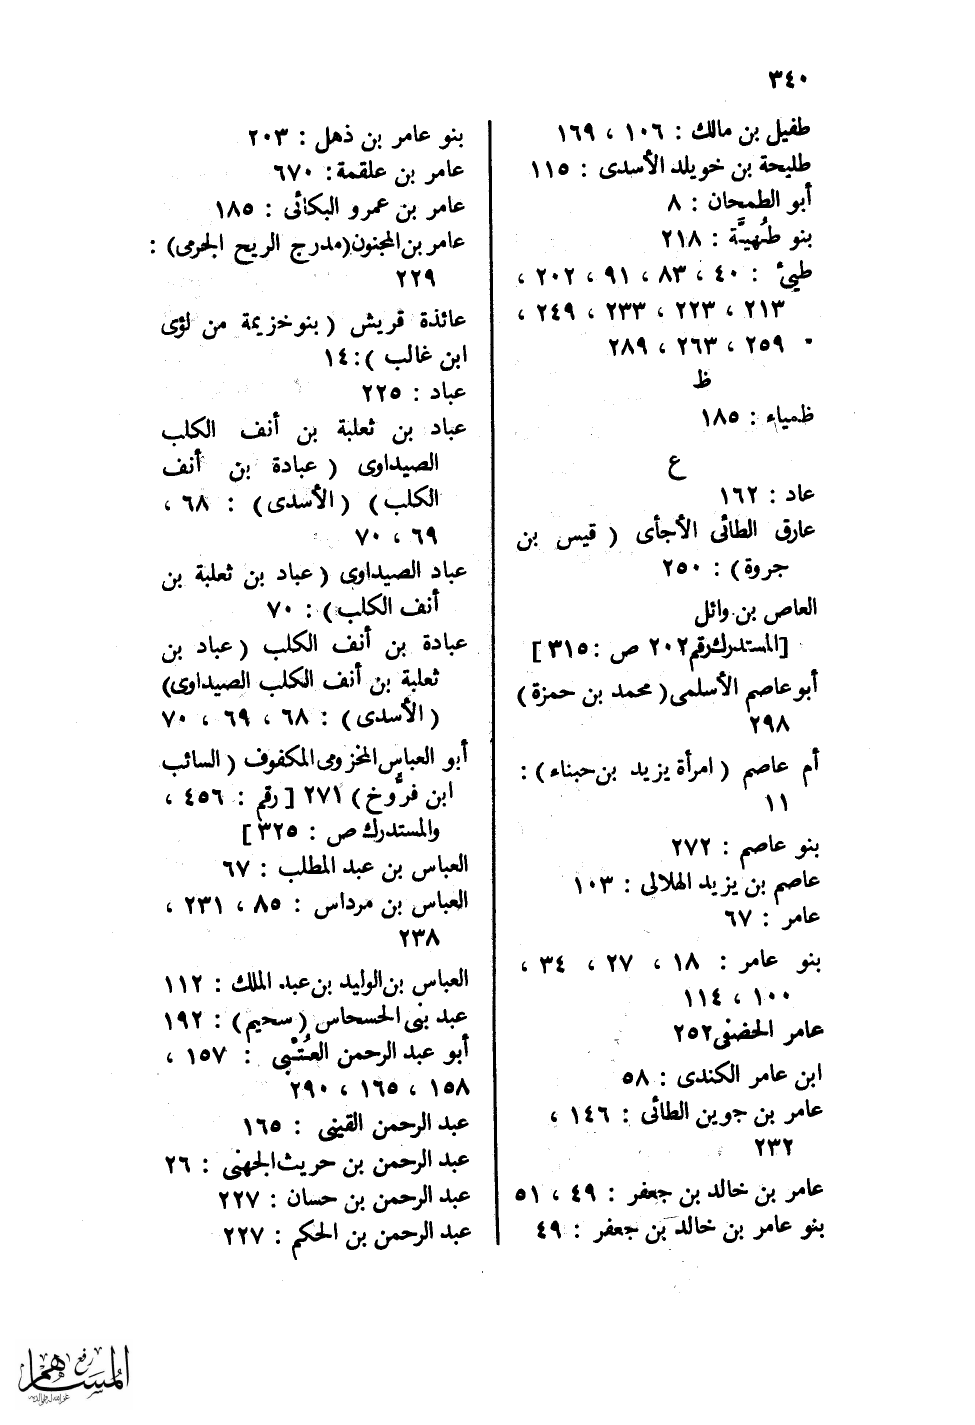 ٣٤٠
طفيل بن مالك : ١٠٦ ، ١٦٩
طليحة بن خويلد الأسدى : ١١٥
أبو الطمحان : ٨
بنو طُهيَّة : ٢١٨
طيئ : ٤٠ ، ٨٣ ، ٩١ ، ٢٠٢ ،
٢١٣ ، ٢٢٣ ، ٢٣٣ ، ٢٤٩ ،
٢٥٩ ، ٢٦٣ ، ٢٨٩
ظ
ظمياء : ١٨٥
ع
عاد : ١٦٢
عارق الطائى الأجأى ( قيس بن
جروة) : ٢٥٠
العاص بن وائل
[المستدرك رقم ٢٠٢ ص : ٣١٥ ]
أبو عاصم الأسلمى ( محمد بن حمزة )
٢٩٨
أم عاصم ( امرأة يزيد بن حبناء ) :
١١
بنو عاصم : ٢٧٢
عاصم بن يزيد الهلالى : ١٠٣
عامر : ٦٧
بنو عامر : ١٨ ، ٢٧ ، ٣٤ ،
١٠٠ ، ١١٤
عامر الخضفى ٢٥٢
ابن عامر الكندى : ٥٨
عامر بن جوين الطائى : ١٤٦ ،
٢٣٢
عامر بن خالد بن جعفر : ٤٩ ، ٥١
بنو عامر بن خالد بن جعفر : ٤٩
بنو عامر بن ذهل : ٢٠٣
عامر بن علقمة : ٦٧٠
عامر بن عمرو البكائى : ١٨٥
عامر بن المجنون (مدرج الريح الجرمى) :
٢٢٩
عائذة قريش ( بنو خزيمة من لؤى
ابن غالب ) : ١٤
عباد : ٢٢٥
عباد بن ثعلبة بن أنف الكلب
الصيداوى ( عبادة بن أنف
الكلب ) ( الأسدى ) : ٦٨ ،
٦٩ ، ٧٠
عباد الصيداوى ( عباد بن ثعلبة بن
أنف الكلب ) : ٧٠
عبادة بن أنف الكلب ( عباد بن
ثعلبة بن أنف الكلب الصيداوى)
( الأسدى ) : ٦٨ ، ٦٩ ، ٧٠
أبو العباس المخزومى المكفوف ( السائب
ابن فرُّوخ ) ٢٧١ [ رقم : ٤٥٦ ،
والمستدرك ص : ٣٢٥ ]
العباس بن عبد المطلب : ٦٧
العباس بن مرداس : ٨٥ ، ٢٣١ ،
٢٣٨
العباس بن الوليد بن عبد الملك : ١١٢
عبد بنى الحسحاس ( سحيم ) : ١٩٢
أبو عبد الرحمن العُتْبى : ١٥٧ ،
١٥٨ ، ١٦٥ ، ٢٩٠
عبد الرحمن القينى : ١٦٥
عبد الرحمن بن حريث الجهنى : ٢٦
عبد الرحمن بن حسان : ٢٢٧
عبد الرحمن بن الحكم : ٢٢٧
رفع
المساهم